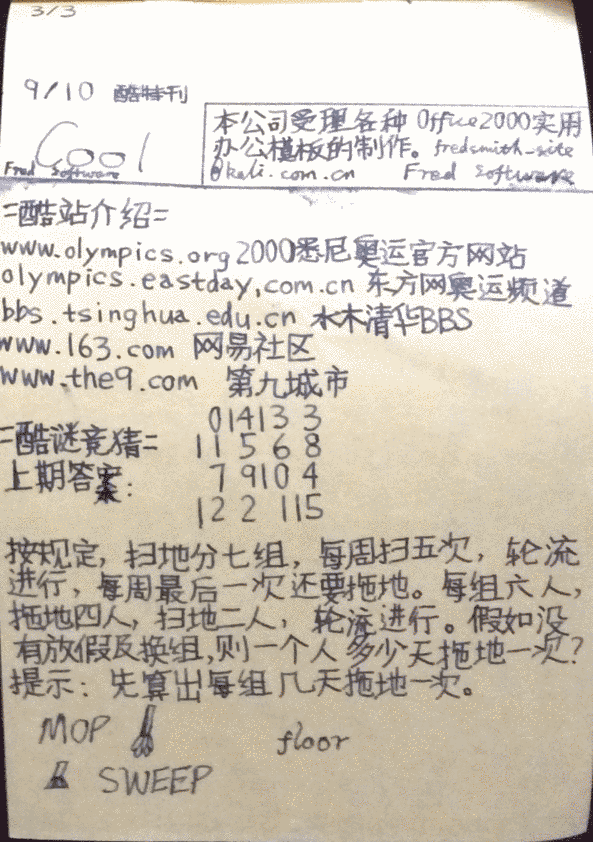 3/3
9/10 酷特刊
Cool
Fred Software
本公司受理各种Office2000实用
办公模板的制作。fredsmith-site
@kali.com.cn Fred Software
=酷站介绍=
www.olympics.org 2000悉尼奥运官方网站
olympics.eastday,com.cn 东方网奥运频道
bbs.tsinghua.edu.cn 水木清华BBS
www.163.com 网易社区
www.the9.com 第九城市
=酷谜竞猜=
上期答案:
0 14 13 3
11 5 6 8
7 9 10 4
12 2 1 15
按规定，扫地分七组，每周扫五次，轮流
进行，每周最后一次还要拖地。每组六人，
拖地四人，扫地二人，轮流进行。假如没
有放假及换组,则一个人多少天拖地一次?
提示：先算出每组几天拖地一次。
MOP
floor
SWEEP